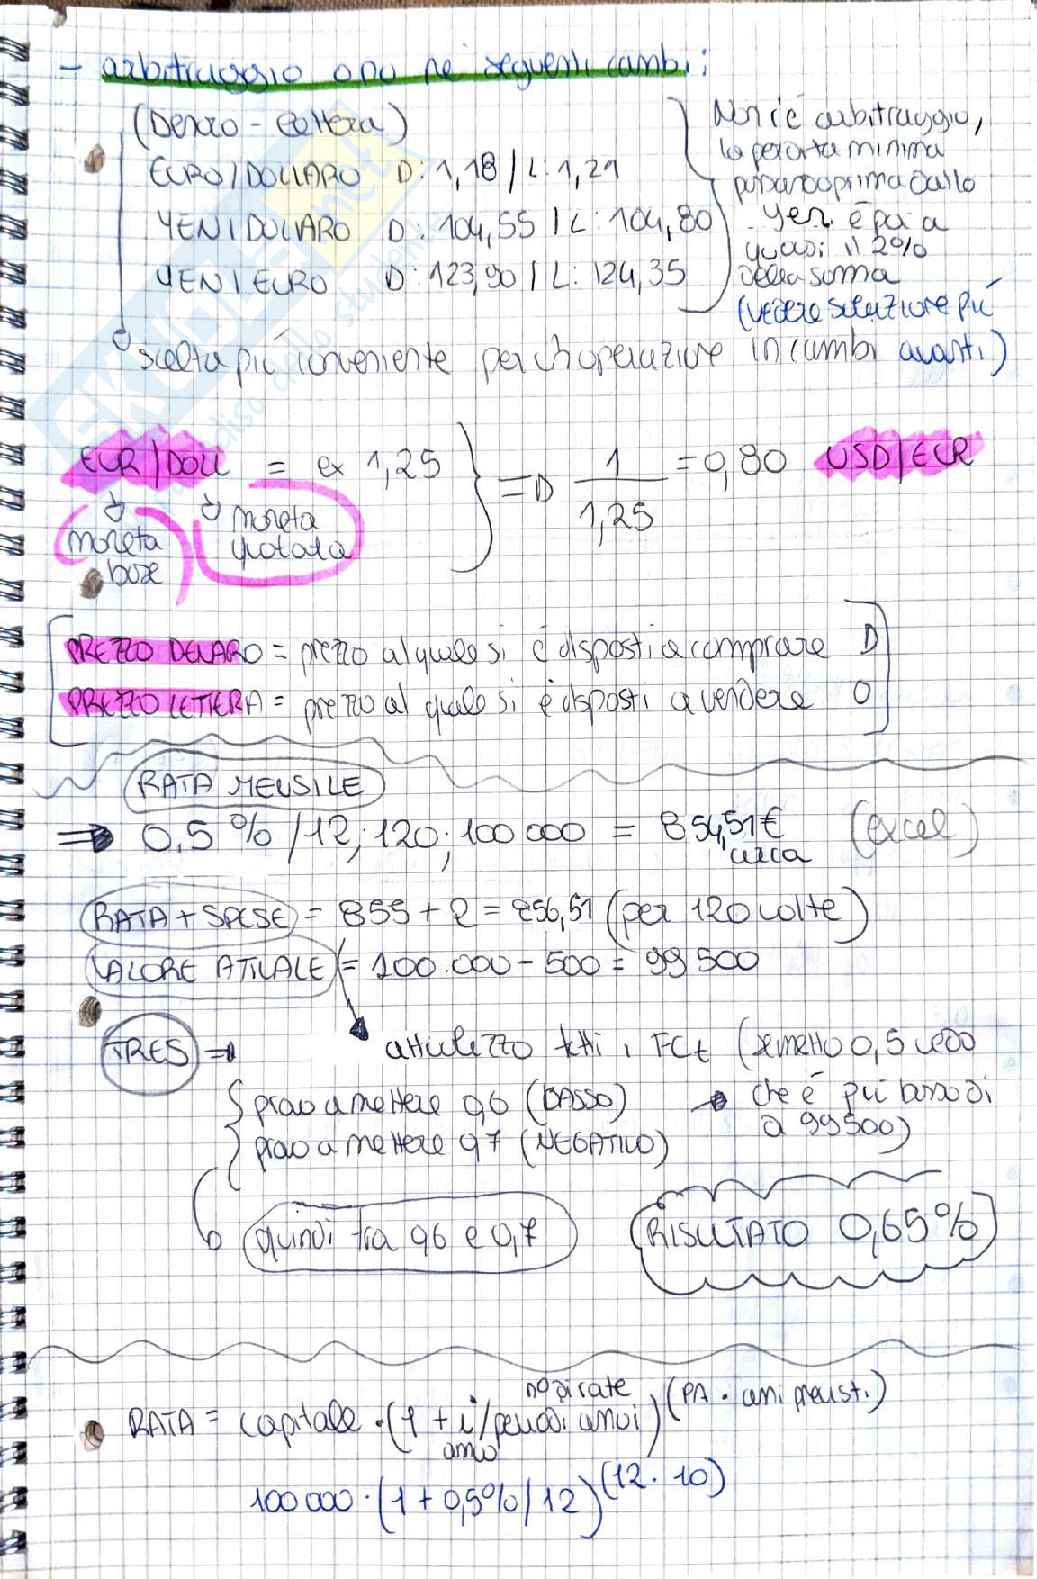 - arbitraggio o no nei seguenti cambi:
(Denaro - Lettera)
EURO/DOLLARO D: 1,18 / L: 1,21
YEN/DOLLARO D: 104,55 / L: 104,80
YEN/EURO D: 123,90 / L: 124,35
Non c'è arbitraggio,
la perdita minima
passando prima dallo
yen è pari a
quasi il 2%
della somma
(vedere soluzione più
avanti)
scelta più conveniente per ch operazione in cambi
EUR/DOLL = ex 1,25
moneta
base
moneta
quotata
=D 1/1,25 = 0,80 USD/EUR
PREZZO DENARO = prezzo al quale si è disposti a comprare D
PREZZO LETTERA = prezzo al quale si è disposti a vendere O
RATA MENSILE
=> 0,5%/12; 120; 100000 = 854,51€ circa (excel)
RATA + SPESE = 855 + 2 = 856,51 (per 120 volte)
VALORE ATTUALE = 100.000 - 500 = 99500
TRES =>
attualizzo tutti i FCt (se metto 0,5 vedo
che è più basso di
a 99500)
provo a mettere 0,6 (BASSO)
provo a mettere 0,7 (NEGATIVO)
quindi tra 0,6 e 0,7
RISULTATO 0,65%
RATA = capitale · (1 + i/periodi annui)^(PA · anni prest.)
no di rate
anno
100000 · (1 + 0,5%/12)^(12 · 10)
SKUOLA.net